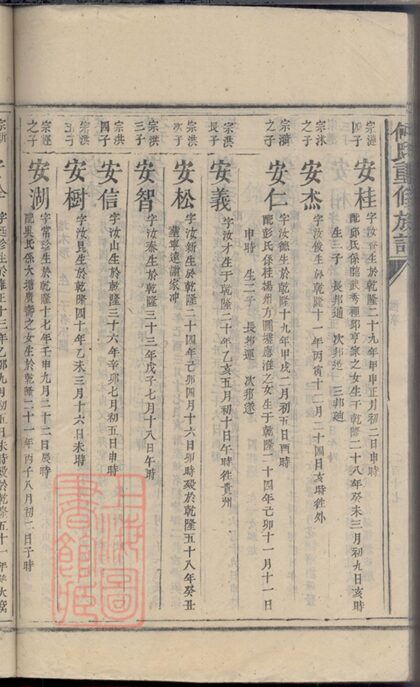 何氏重修族譜
宗漣
之子
安桂
字汝香生於乾隆二十九年甲申正月初二日申時
配鄒氏係 武秀 鄒亨家之女生于乾隆二十八年癸未三月初九日亥時
生三子 長邦通 次邦 三邦迪
宗沐
之子
安杰
字汝俊生於乾隆十一年丙寅十二月二十四日亥時往外
宗濆
之子
安仁
字汝德生於乾隆十九年甲戌二月初五日酉時
配彭氏係桂 州方圓 應淮之女生于乾隆二十四年己卯十一月十一日
申時 生二子 長邦 次邦選
宗洪
長子
安義
字汝才生于乾隆二十年乙亥五月初十日午時往貴州
宗洪
次子
安松
字汝新生於乾隆二十四年己卯四月十六日卯時歿於乾隆五十八年癸丑
葬寧遠謝家冲
宗洪
三子
安智
字汝泰生於乾隆三十三年戊子七月十八日午時
宗洪
四子
安信
字汝山生於乾隆三十六年辛卯七月初五日申時
宗洪
五子
安樹
字汝見生於乾隆四十年乙未三月十六日未時
宗涇
之子
安湖
字常珍生於乾隆十七年壬申九月二十二日辰時
配吳氏係大塘 壽之女生於乾隆二十一年丙子八月初二日子時
字 珍生於雍正十三年乙卯九月初五日未時歿於乾隆五十一年
上海圖
書館藏